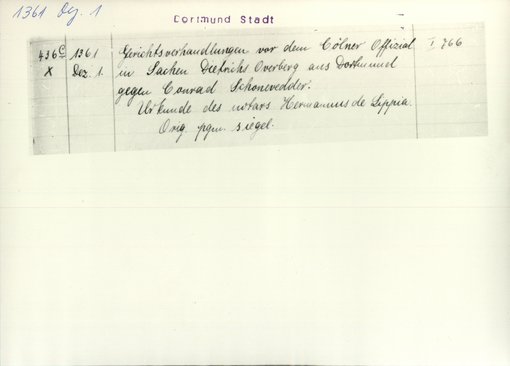 1361 Dez. 1
Dortmund Stadt
436c 1361 Gerichtsverhandlungen vor dem Cölner Official I 766
X Dez. 1. in Sachen Dietrichs Overberg aus Dortmund
gegen Conrad Schonevedder.
Urkunde des notars Hermannus de Lippia.
Orig. pgm. siegel.